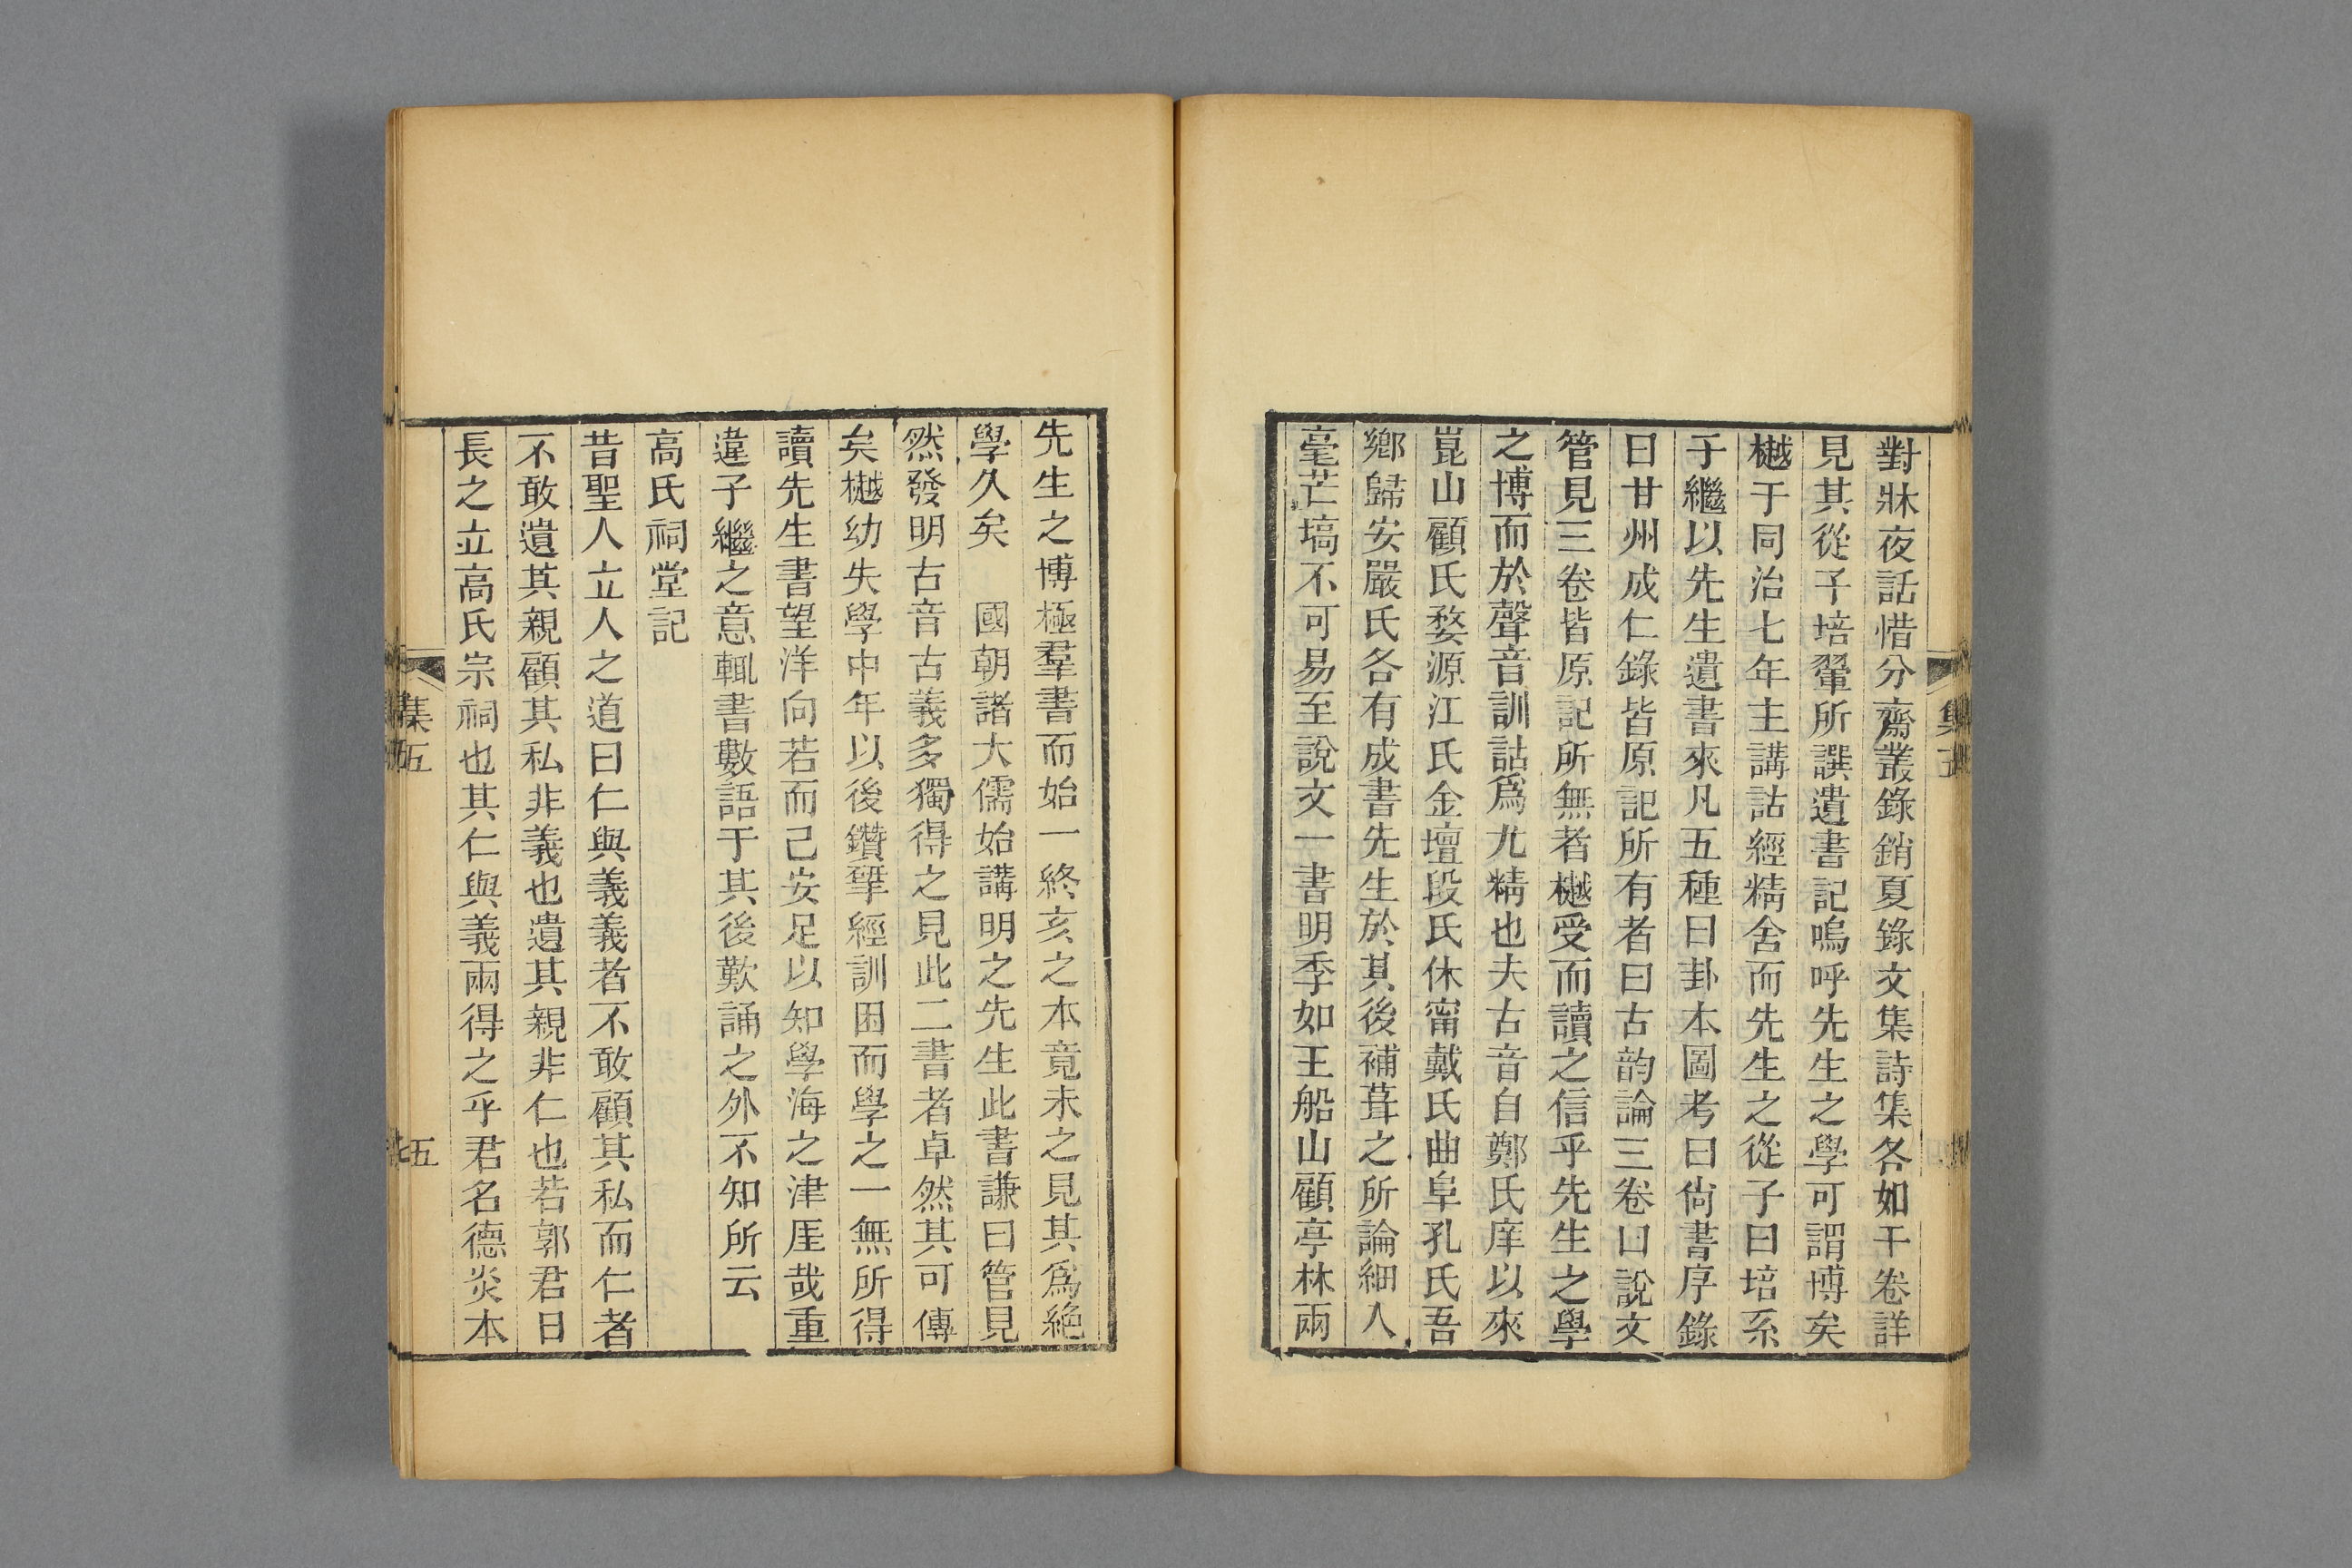 對牀夜話惜分齋叢錄銷夏錄文集詩集各如干卷詳
見其從子培翬所譔遺書記嗚呼先生之學可謂博矣
樾于同治七年主講詁經精舍而先生之從子曰培系
子繼以先生遺書來凡五種曰卦本圖考曰尙書序錄
曰甘州成仁錄皆原記所有者曰古韵論三卷曰說文
管見三卷皆原記所無者樾受而讀之信乎先生之學
之博而於聲音訓詁爲尤精也夫古音自鄭氏庠以來
崑山顧氏婺源江氏金壇段氏休甯戴氏曲阜孔氏吾
鄉歸安嚴氏各有成書先生於其後補葺之所論細入
毫芒塙不可易至說文一書明季如王船山顧亭林兩
集五
先生之博極羣書而始一終亥之本竟未之見其爲絕
學久矣　國朝諸大儒始講明之先生此書謙曰管見
然發明古音古義多獨得之見此二書者卓然其可傳
矣樾幼失學中年以後鑽揅經訓困而學之一無所得
讀先生書望洋向若而己安足以知學海之津厓哉重
違子繼之意輒書數語于其後歎誦之外不知所云
高氏祠堂記
昔聖人立人之道曰仁與義義者不敢顧其私而仁者
不敢遺其親顧其私非義也遺其親非仁也若郭君日
長之立高氏宗祠也其仁與義兩得之乎君名德炎本
集五
五